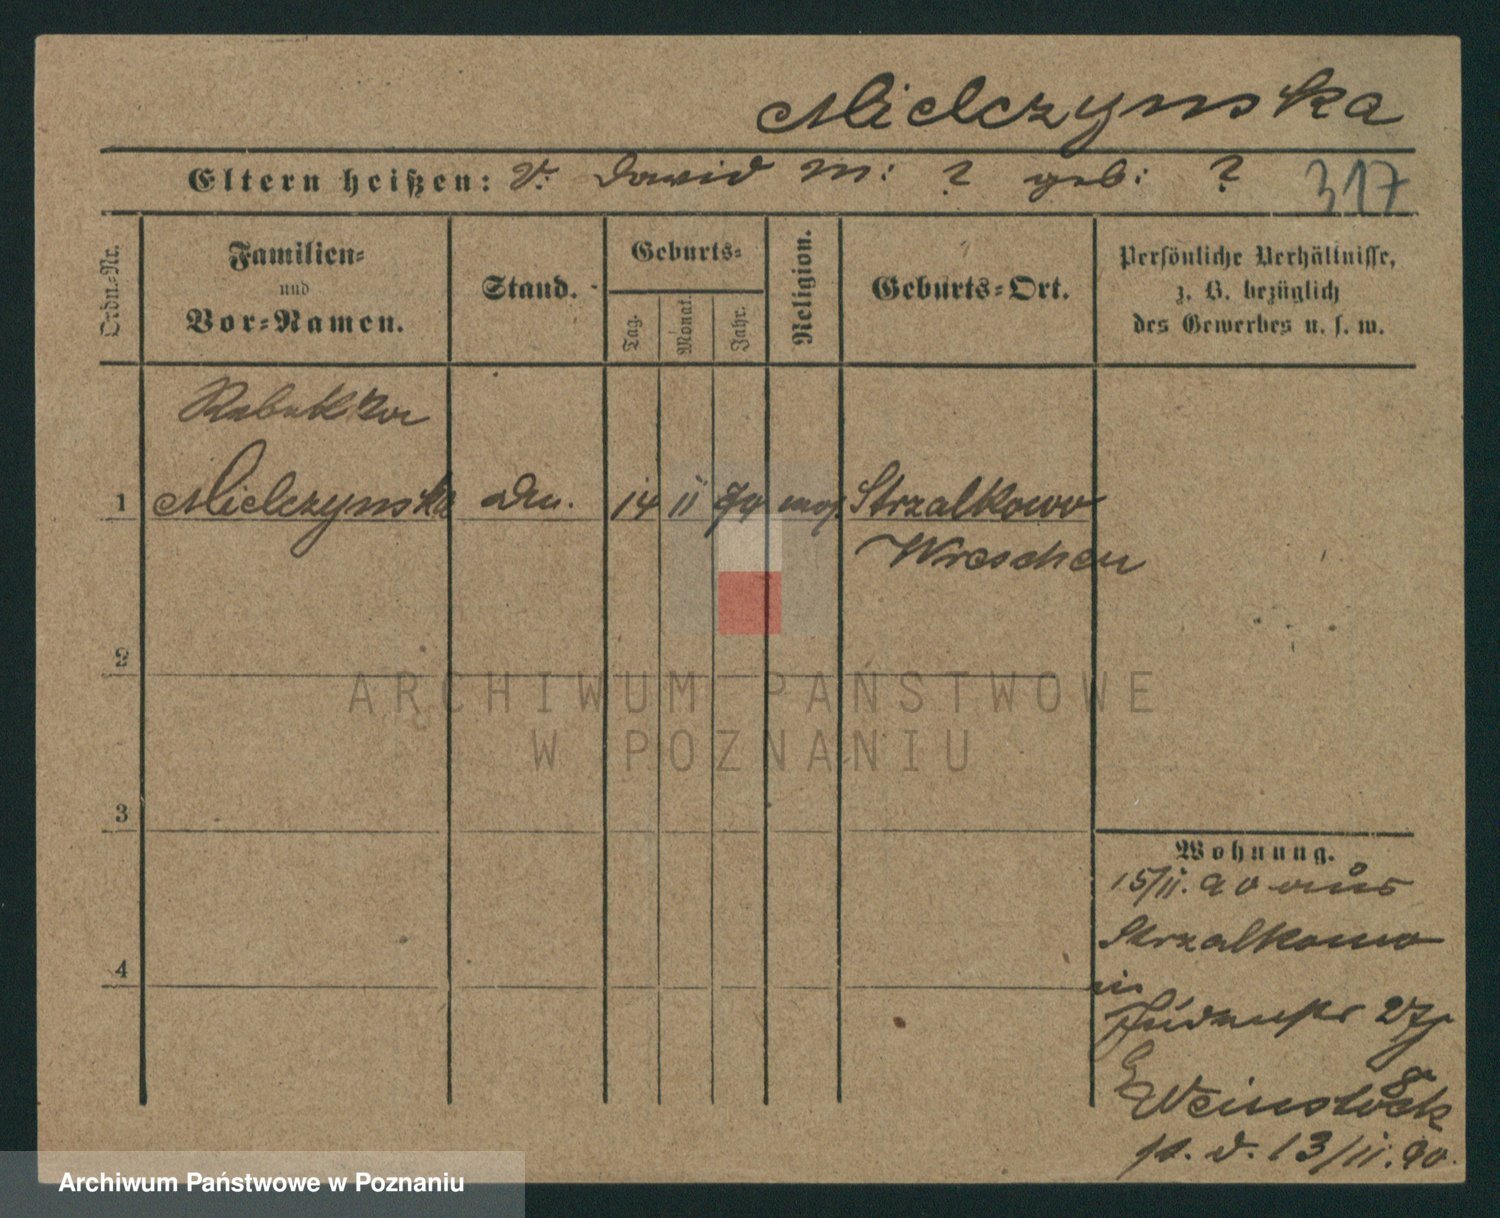 Mielczynska
Eltern heißen: V: David M: ? geb: ? 317
Ordn.-Nr.
Familien-
und
Vor-Namen.
Stand.
Geburts-
Tag.
Monat.
Jahr.
Religion.
Geburts-Ort.
Persönliche Verhältnisse,
z. B. bezüglich
des Gewerbes u. s. w.
Rebekka
1 Mielczynska 14 II mos. Strzalkowo
Wreschen
2
3
4
Wohnung.
15/II. 90 aus
Strzalkowo
in
Judenstr 27
Weinstock
p. d. 13/II. 90.
ARCHIWUM PAŃSTWOWE
W POZNANIU
Archiwum Państwowe w Poznaniu